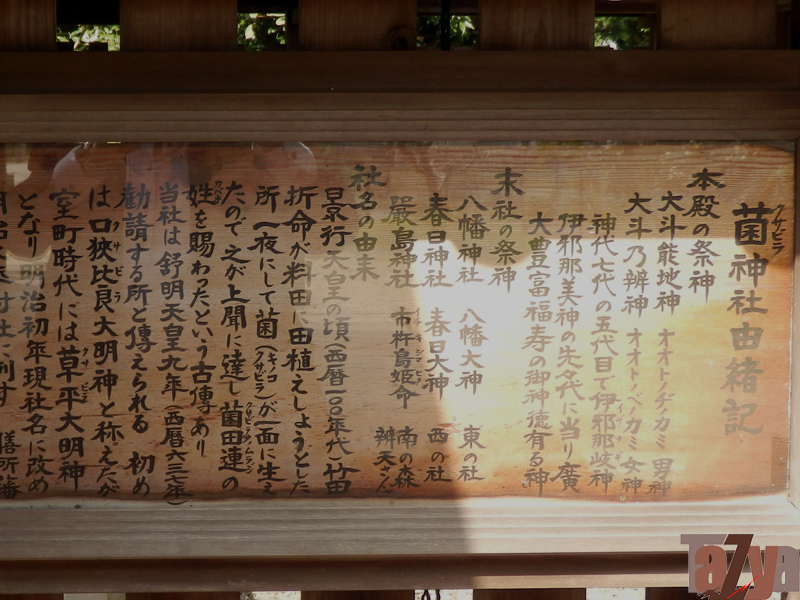 菌神社由緒記
クサビラ
本殿の祭神
大斗能地神 オオトノヂノカミ 男神
大斗乃辨神 オオトノベノカミ 女神
神代七代の五代目で伊邪那岐神
イザナギ
伊邪那美神の先々代に当り廣
大豊富福寿の御神徳有る神
末社の祭神
八幡神社 八幡大神 東の社
春日神社 春日大神 西の社
嚴島神社 市杵島姫命 南の森
イチキシマヒメ
辨天さん
社名の由来
景行天皇の頃(西暦一〇〇年代)竹田
折命が料田に田植えしようとした
所 一夜にして菌(キノコ)(クサビラ)が一面に生え
たので之が上聞に達し菌田連の
クサビラダムラジ
姓を賜わったという古傳あり
カバネ
当社は舒明天皇九年(西暦六三七年)
勧請する所と傳えられる 初め
は口狹比良大明神と称えたが
クサビラ
室町時代には草平大明神
クサビラ
となり明治初年現社名に改め
膳所藩
TaZya